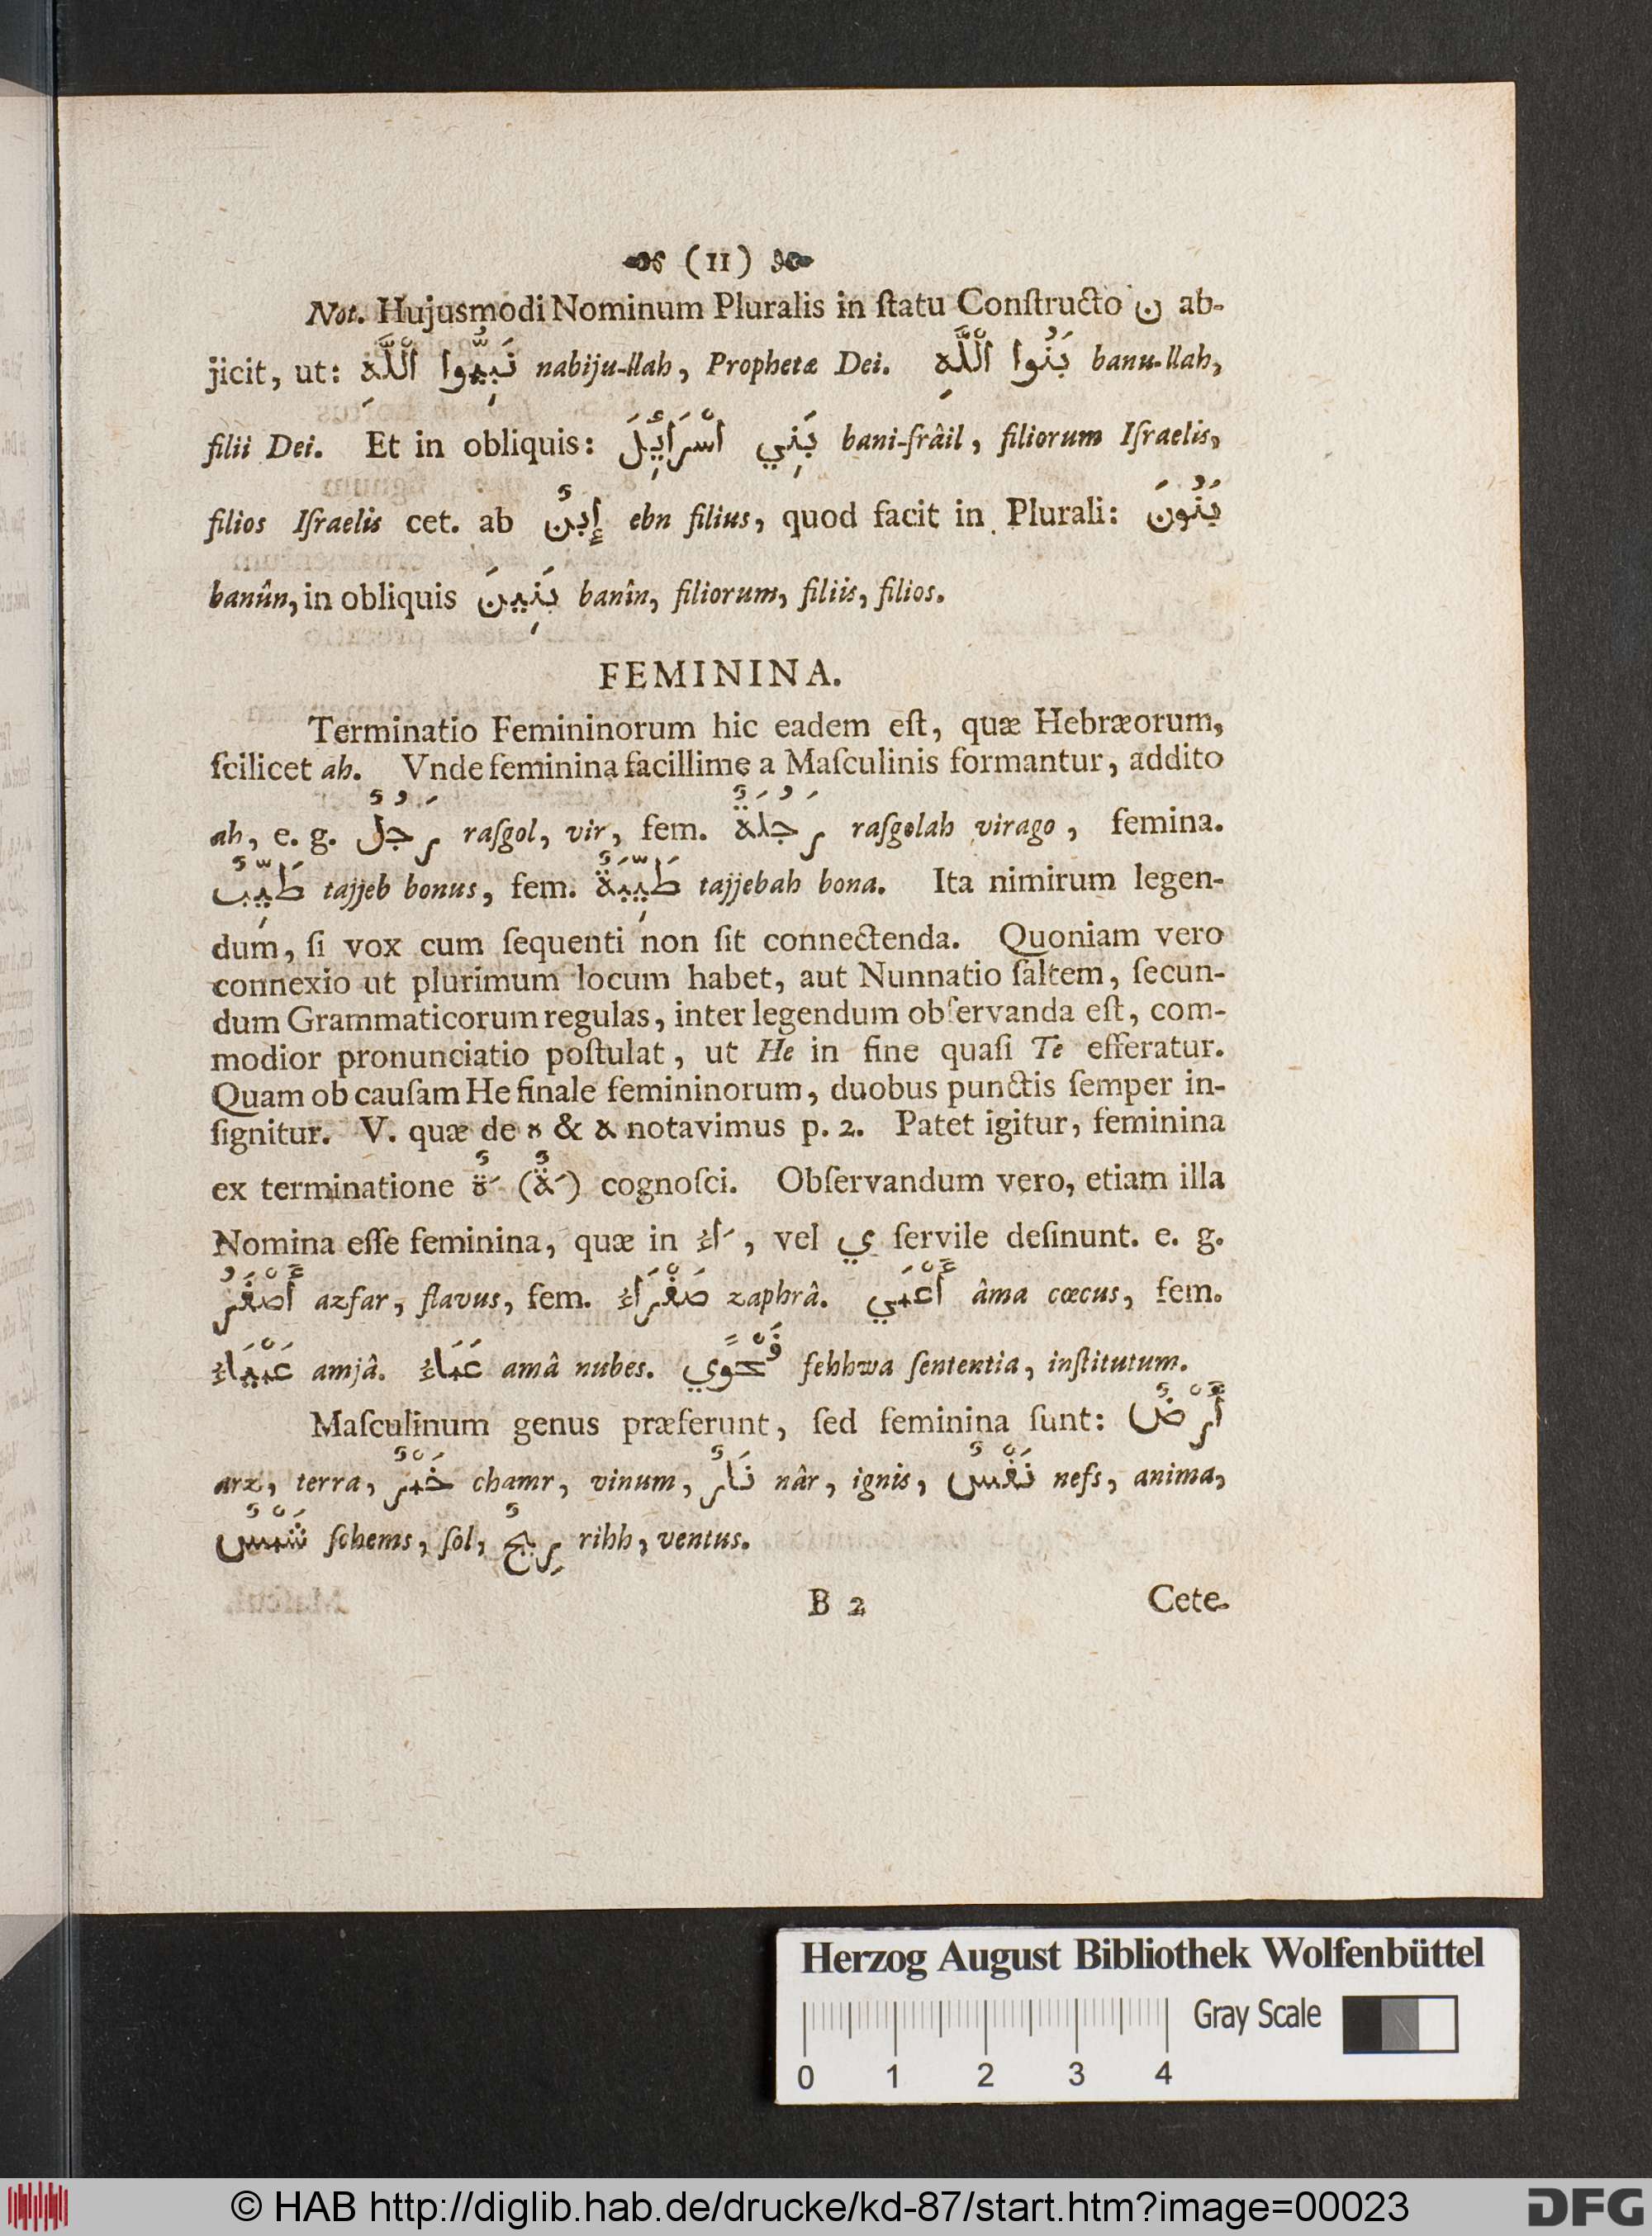 (11)
Not. Hujusmodi Nominum Pluralis in ſtatu Conſtructo ن ab-
jicit, ut: نَبِيُّوا ٱللَّهِ nabiju-llah, Prophetæ Dei. بَنُوا ٱللَّهِ banu-llah,
filii Dei. Et in obliquis: بَنِي اسْرَائِلَ bani-ſrâil, filiorum Iſraelis,
filios Iſraelis cet. ab إِبنٌ ebn filius, quod facit in Plurali: بَنُونَ
banûn, in obliquis بَنِينَ banîn, filiorum, filiis, filios.
FEMININA.
Terminatio Femininorum hic eadem eſt, quæ Hebræorum,
ſcilicet ah. Vnde feminina facillime a Maſculinis formantur, addito
ah, e. g. رَجُلٌ raſgol, vir, fem. رَجُلَةٌ raſgolah virago, femina.
طَيِّبٌ tajjeb bonus, fem. طَيِّبَةٌ tajjebah bona. Ita nimirum legen-
dum, ſi vox cum ſequenti non ſit connectenda. Quoniam vero
connexio ut plurimum locum habet, aut Nunnatio ſaltem, ſecun-
dum Grammaticorum regulas, inter legendum obſervanda eſt, com-
modior pronunciatio poſtulat, ut He in fine quaſi Te efferatur.
Quam ob cauſam He finale femininorum, duobus punctis ſemper in-
ſignitur. V. quæ de ه & ـه notavimus p. 2. Patet igitur, feminina
ex terminatione َةٌ (َـةٌ) cognoſci. Obſervandum vero, etiam illa
Nomina eſſe feminina, quæ in َاء, vel ي ſervile deſinunt. e. g.
أَصْفَرُ azfar, flavus, fem. صَفْرَاء zaphrâ. أَعْمَي âma cœcus, fem.
عَمْيَاء amjâ. عَمَاء amâ nubes. فَحْوًي fehhwa ſententia, inſtitutum.
Maſculinum genus præferunt, ſed feminina ſunt: أَرْضٌ
arz, terra, خَمْرٌ chamr, vinum, نَارٌ nâr, ignis, نَفْسٌ nefs, anima,
شَمْسٌ ſchems, ſol, رِيحٌ rihh, ventus.
B 2 Cete-
Herzog August Bibliothek Wolfenbüttel
Gray Scale
0 1 2 3 4
© HAB http://diglib.hab.de/drucke/kd-87/start.htm?image=00023 DFG